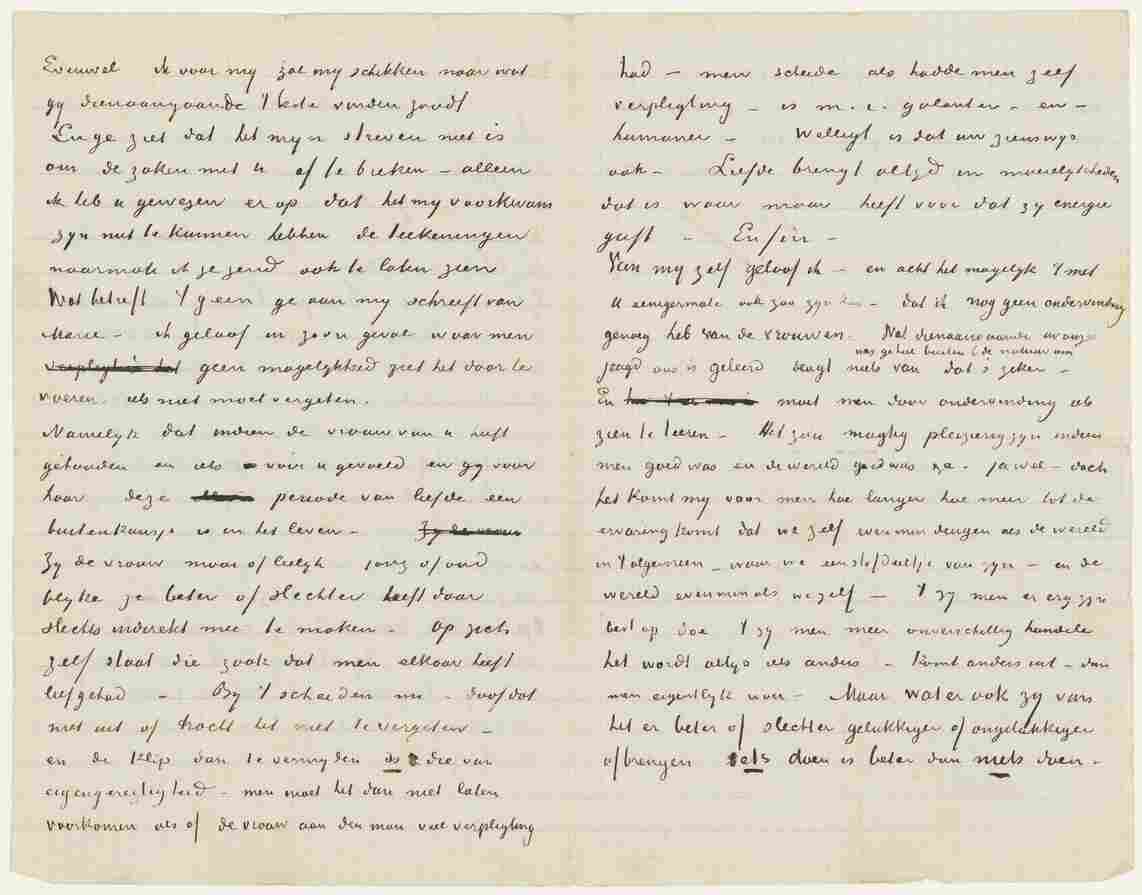 Evenwel ik voor my zal my schikken naar wat
gy dienaangaande 't beste vinden zoudt
En ge ziet dat het myn streven niet is
om de zaken met U af te breken – alleen
ik heb u gewezen er op dat het my voorkwam
zyn nut te kunnen hebben de teekeningen
naarmate ik ze zend ook te laten zien
Wat betreft 't geen ge aan my schreeft van
Marie – ik geloof in zoo'n geval waar men
verpligting had geen mogelykheid ziet het door te
voeren iets niet moet vergeten.
Namelyk dat indien de vrouw van u heeft
gehouden en iets voor u gevoeld en gy voor
haar deze periode van liefde een
buitenkansje is in het leven – Zy de vrouw
Zy de vrouw mooi of leelyk jong of oud
blyke ze beter of slechter heeft daar
slechts indirekt mee te maken – op zich
zelf staat die zaak dat men elkaar heeft
liefgehad – By 't scheiden nu – doof dat
niet uit of tracht het niet te vergeten –
en de klip dan te vermyden is die van
eigengeregtigheid – men moet het dan niet laten
voorkomen als of de vrouw aan den man veel verpligting
had – men scheide als hadde men zelf
verpligting – is m.i. galanter – en –
humaner – Welligt is dat uw zienswys
ook – Liefde brengt altyd in moeielykheden
dat is waar maar heeft voor dat zy energie
geeft – Enfin –
Van my zelf geloof ik – en acht het mogelyk 't met
U eenigermate ook zoo zyn – dat ik nog geen ondervinding
genoeg heb van de vrouwen. Wat dienaangaande in onze
was geheel buiten de natuur om
jeugd ons is geleerd deugt niets van dat 's zeker –
En moet men door ondervinding iets
zien te leeren – Het zou magtig pleizierig zyn indien
men goed was en de wereld goed was &a. jawel – doch
het komt my voor men hoe langer hoe meer tot de
ervaring komt dat we zelf evenmin deugen als de wereld
in 't algemeen – waar we een stofdeeltje van zyn – en de
wereld evenmin als wezelf – 't zy men er erg zyn
best op doe 't zy men meer onverschillig handele
het wordt altyd iets anders – komt anders uit – dan
men eigentlyk wou – Maar wat er ook zy van
het er beter of slechter gelukkiger of ongelukkiger
afbrengen iets doen is beter dan niets doen –